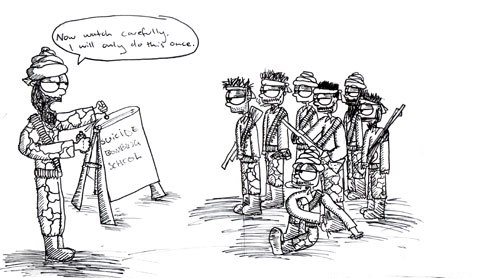 Now watch carefully.
I will only do this once.
SUICIDE
BOMBING
SCHOOL